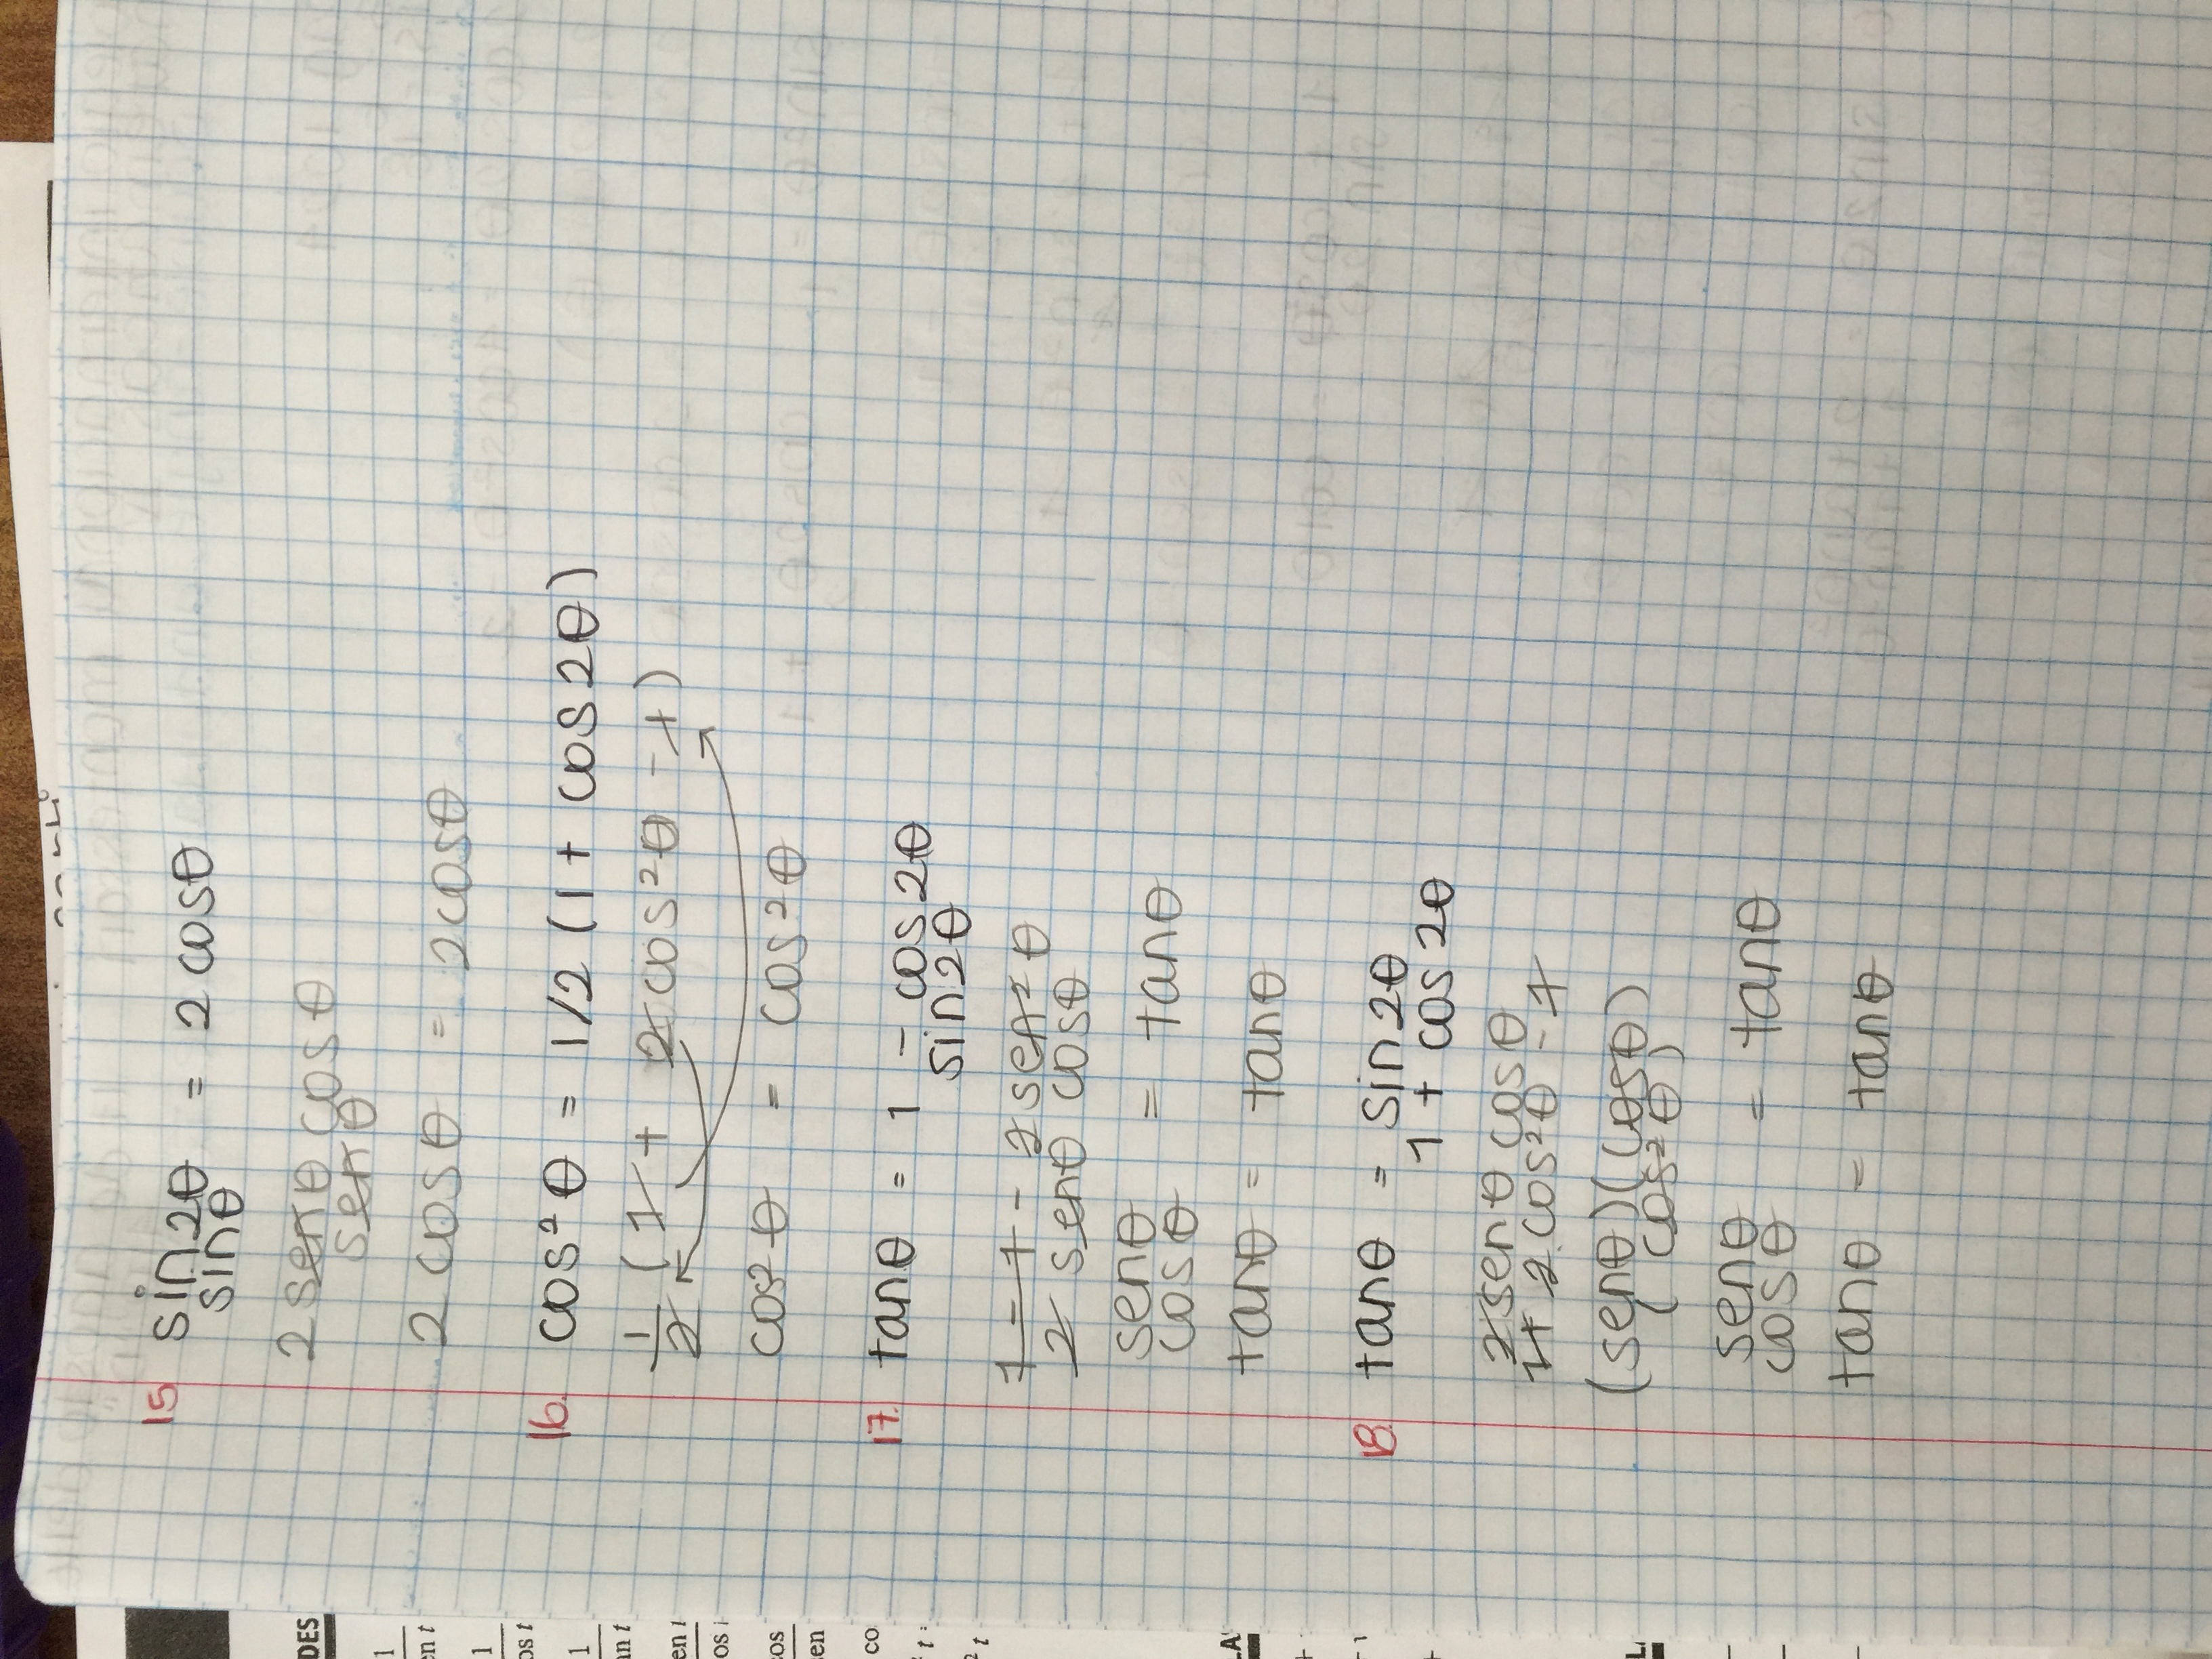 15 sin2θ / sinθ = 2 cosθ
2 senθ cosθ / senθ
2 cosθ = 2cosθ
16. cos²θ = 1/2 (1 + cos2θ)
1/2 (1 + 2cos²θ - 1)
cos²θ = cos²θ
17. tanθ = 1 - cos2θ / sin2θ
1 - 1 - 2sen²θ / 2 senθ cosθ
senθ / cosθ = tanθ
tanθ = tanθ
18. tanθ = sin2θ / 1 + cos2θ
2senθ cosθ / 1 + 2cos²θ - 1
(senθ)(cosθ) / (cos²θ)
senθ / cosθ = tanθ
tanθ = tanθ
DES
1
en t
1
os t
1
an t
en t
cos
cos
sen
co
² t
² t
LA